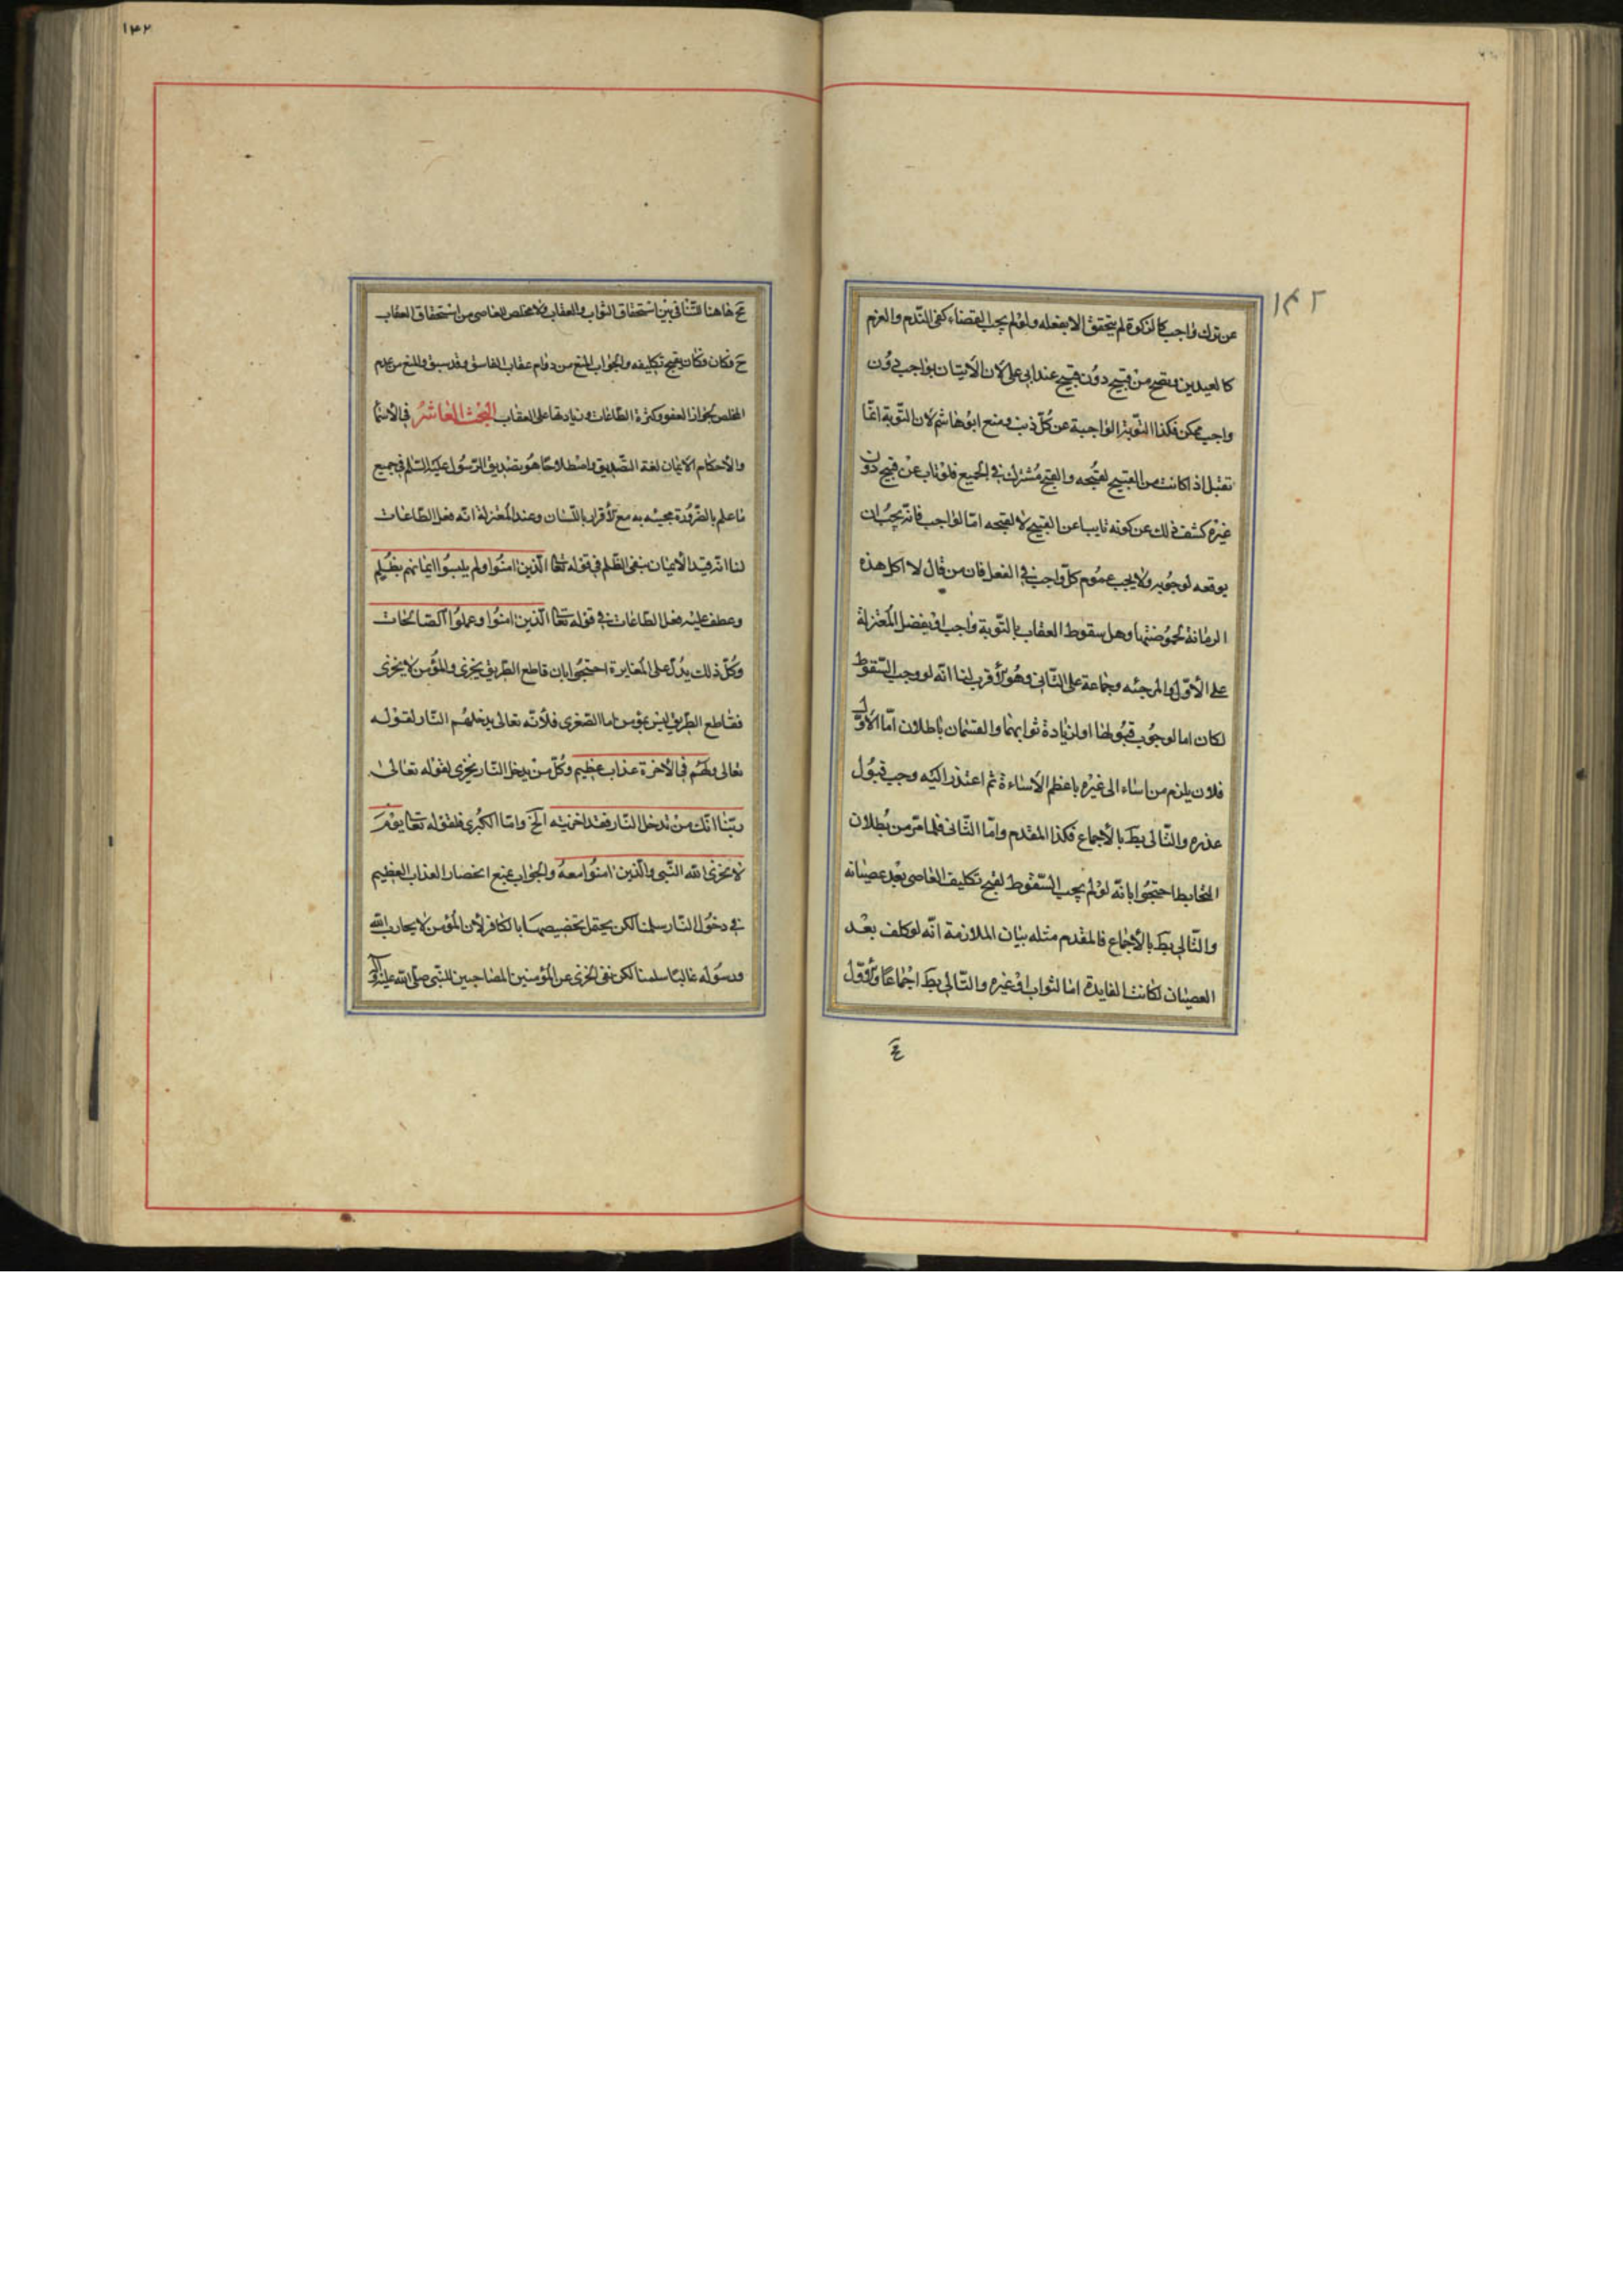 ١٤٢
عن ترك واجب كالزكوة لم يتحقق الا بفعله ولو لم يجب القضاء كفى الندم والعزم
كالعيدين وتصح من قبيح دون قبيح عند ابى على لان الاتيان بواجب دون
واجب ممكن فكذا التوبة الواجبة عن كل ذنب ومنع ابو هاشم لان التوبة انما
تقبل اذا كانت من القبيح لقبحه والقبح مشترك فى الجميع فلو تاب عن قبيح دون
غيره كشف ذلك عن كونه تايبا عن القبيح لا لقبحه اما الواجب فانه يجب ان
يوقعه لوجوبه ولا يجب عموم كل واجب فى الفعل فان من قال لا اكل هذه
الرمانة لحموضتها وهل سقوط العقاب بالتوبة واجب او بفضل المعتزلة
على الاول والمرجئه وجماعة على الثانى وهو الأقرب لنا انه لو وجب السقوط
لكان اما لوجوب قبولها او لزيادة ثوابهما والقسمان باطلان اما الاول
فلان يلزم من اساء الى غيره باعظم الأساءة ثم اعتذر اليه وجب قبول
عذره والتالى بط بالأجماع فكذا المقدم واما الثانى فلما مر من بطلان
التحابط احتجوا بانه لو لم يجب السقوط لقبح تكليف العاصى بعد عصيانه
والتالى بط بالأجماع فالمقدم مثله بيان الملازمة انه لو كلف بعد
العصيان لكانت الفايدة اما الثواب او غيره والتالى بط اجماعا والأول
ع
١٤٢
ع هاهنا للتنافى بين استحقاق الثواب والعقاب ولا مخلص للعاصى من استحقاق العقاب
ح وكان يقبح تكليفه والجواب المنع من دوام عقاب الفاسق وقد سبق والمنع من عدم
المخلص لجواز العفو وكثرة الطاعات وزيادتها على العقاب البحث العاشر فى الأسما
والأحكام الايمان لغة التصديق واصطلاحا هو تصديق الرسول عليه السلم فى جميع
ما علم بالضرورة مجيئه به مع الأقرار باللسان وعند المعتزلة انه فعل الطاعات
لنا انه قيد الأيمان بنفى الظلم فى قوله تعا الذين امنوا ولم يلبسوا ايمانهم بظلم
وعطف عليه فعل الطاعات فى قوله تعا الذين امنوا وعملوا الصالحات
وكل ذلك يدل على المغايرة احتجوا بان قاطع الطريق يخزى والمؤمن لا يخزى
فقاطع الطريق ليس بمؤمن اما الصغرى فلأنه تعالى يدخلهم النار لقوله
تعالى ولهم فى الأخرة عذاب عظيم وكل من يدخل النار يخزى لقوله تعالى
ربنا انك من تدخل النار فقد اخزيته الخ واما الكبرى فلقوله تعا يوم
لا يخزى الله النبى والذين امنوا معه والجواب بمنع انحصار العذاب العظيم
فى دخول النار سلمنا لكن يحتمل تخصيصها بالكافر لأن المؤمن لا يحارب الله
ورسوله غالبا سلمنا لكن نفى الخزى عن المؤمنين المصاحبين للنبى صلى الله عليه واله